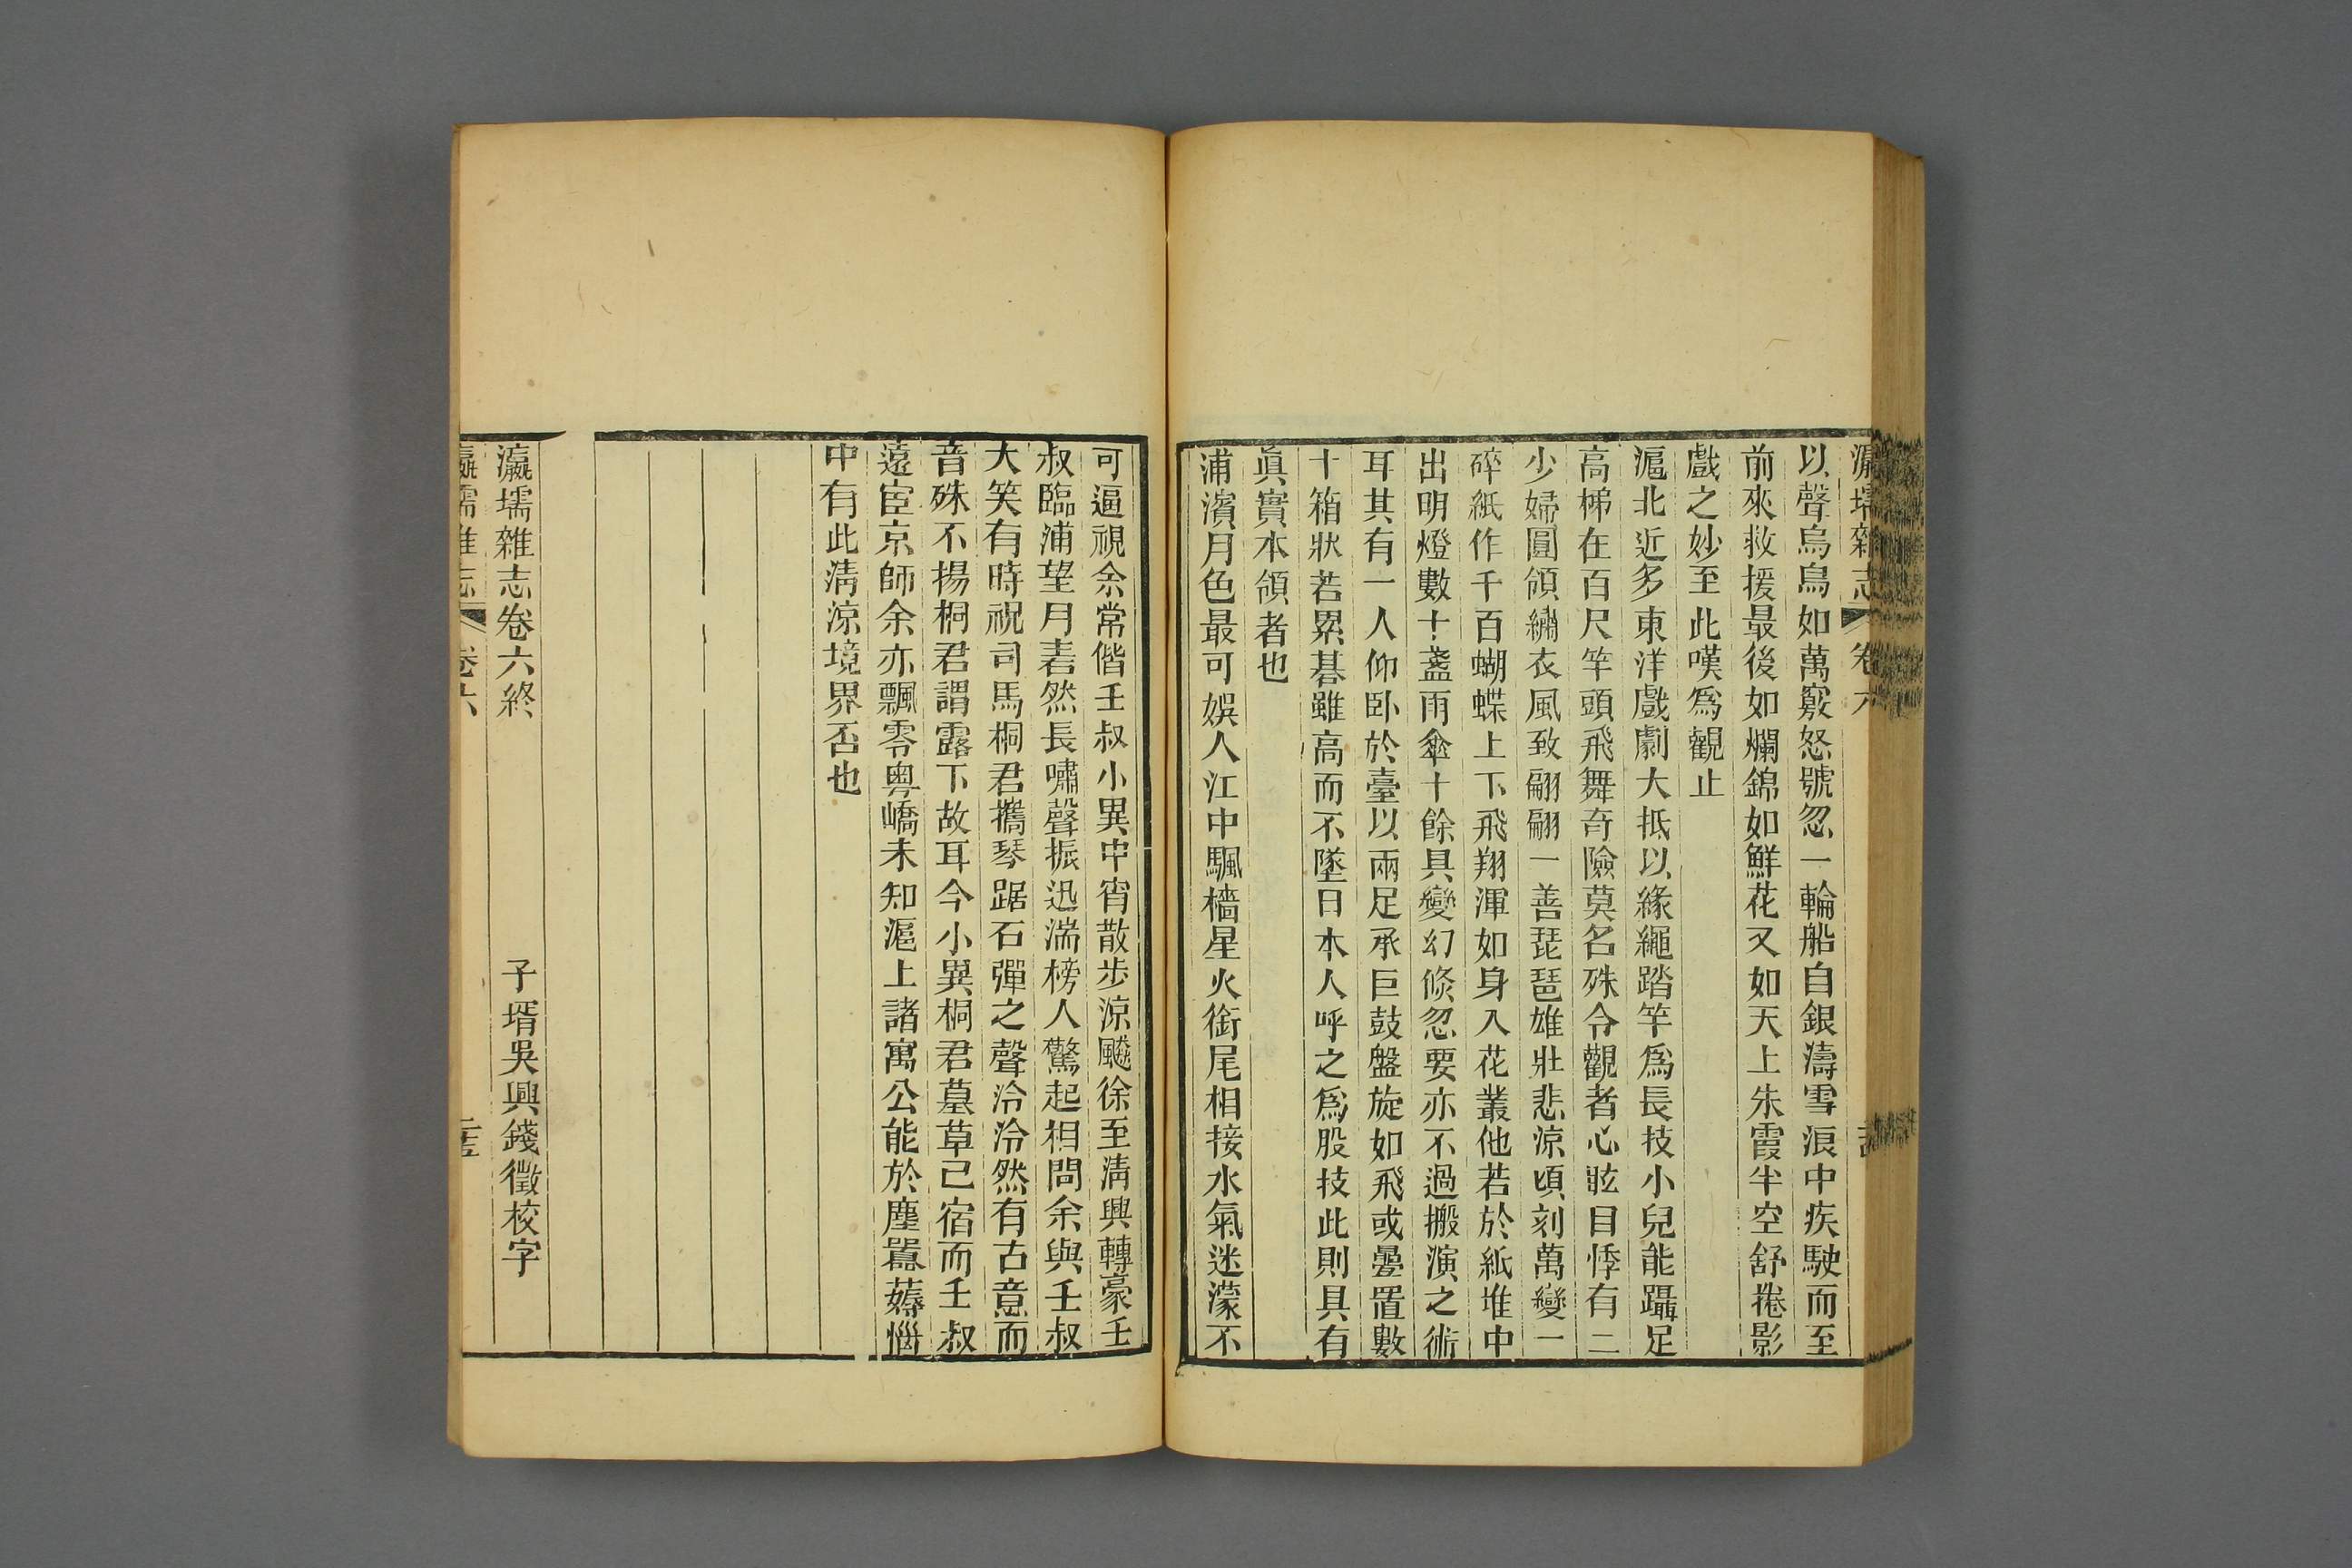 瀛壖雜志 卷六
以聲烏烏如萬竅怒號忽一輪船自銀濤雪浪中疾駛而至
前來救援最後如爛錦如鮮花又如天上朱霞半空舒捲影
戲之妙至此嘆爲觀止
滬北近多東洋戲劇大抵以緣繩踏竿爲長技小兒能躡足
高梯在百尺竿頭飛舞奇險莫名殊令觀者心眩目悸有二
少婦圓領繡衣風致翩翩一善琵琶雄壯悲涼頃刻萬變一
碎紙作千百蝴蝶上下飛翔渾如身入花叢他若於紙堆中
出明燈數十盞雨傘十餘具變幻倐忽要亦不過搬演之術
耳其有一人仰卧於臺以兩足承巨鼓盤旋如飛或疊置數
十箱狀若累碁雖高而不墜日本人呼之爲股技此則具有
眞實本領者也
浦濱月色最可娛人江中颿檣星火銜尾相接水氣迷濛不
可逼視余常偕壬叔小異中宵散步涼颸徐至淸興轉豪壬
叔臨浦望月砉然長嘯聲振迅湍榜人驚起相問余與壬叔
大笑有時祝司馬桐君攜琴踞石彈之聲泠泠然有古意而
音殊不揚桐君謂露下故耳今小異桐君墓草已宿而壬叔
遠宦京師余亦飄零粵嶠未知滬上諸寓公能於塵囂薅惱
中有此淸涼境界否也
瀛壖雜志卷六終 子壻吳興錢徵校字
瀛壖雜志 卷六